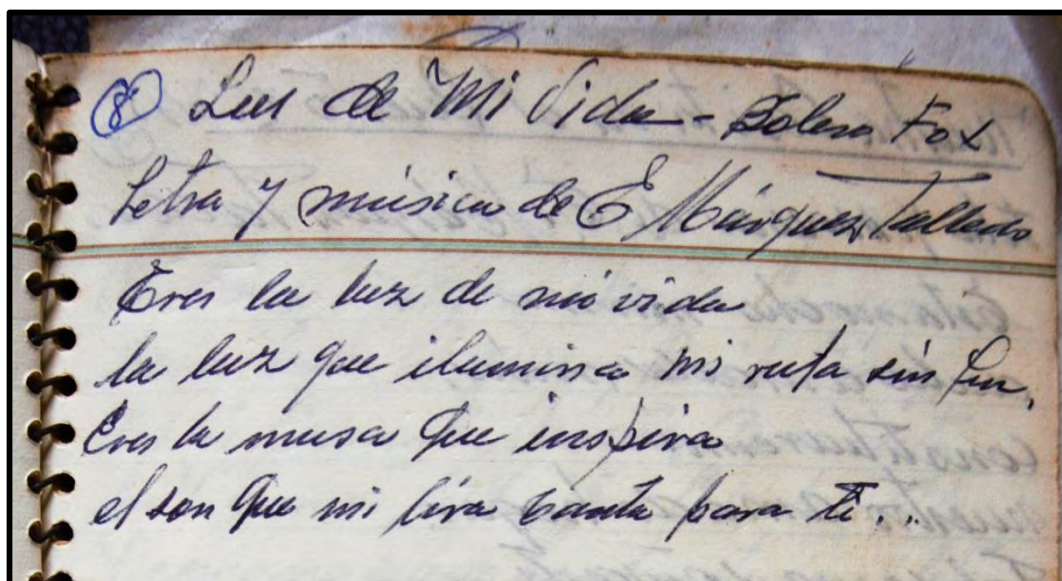 8 Luz de Mi Vida - Bolero Fox
Letra y música de E Márquez Talledo
Eres la luz de mi vida
la luz que ilumina mi ruta sin fin,
Eres la musa que inspira
el son que mi lira canta para ti...